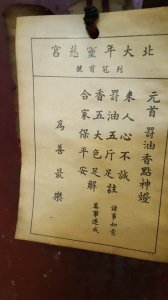 北大年靈慈宮
列冠首號
元首 罰油香點神燈
來人心不誠
罰油五斤足註
香五大色足解
合家保平安
諸事如意
萬事達成
為善最樂